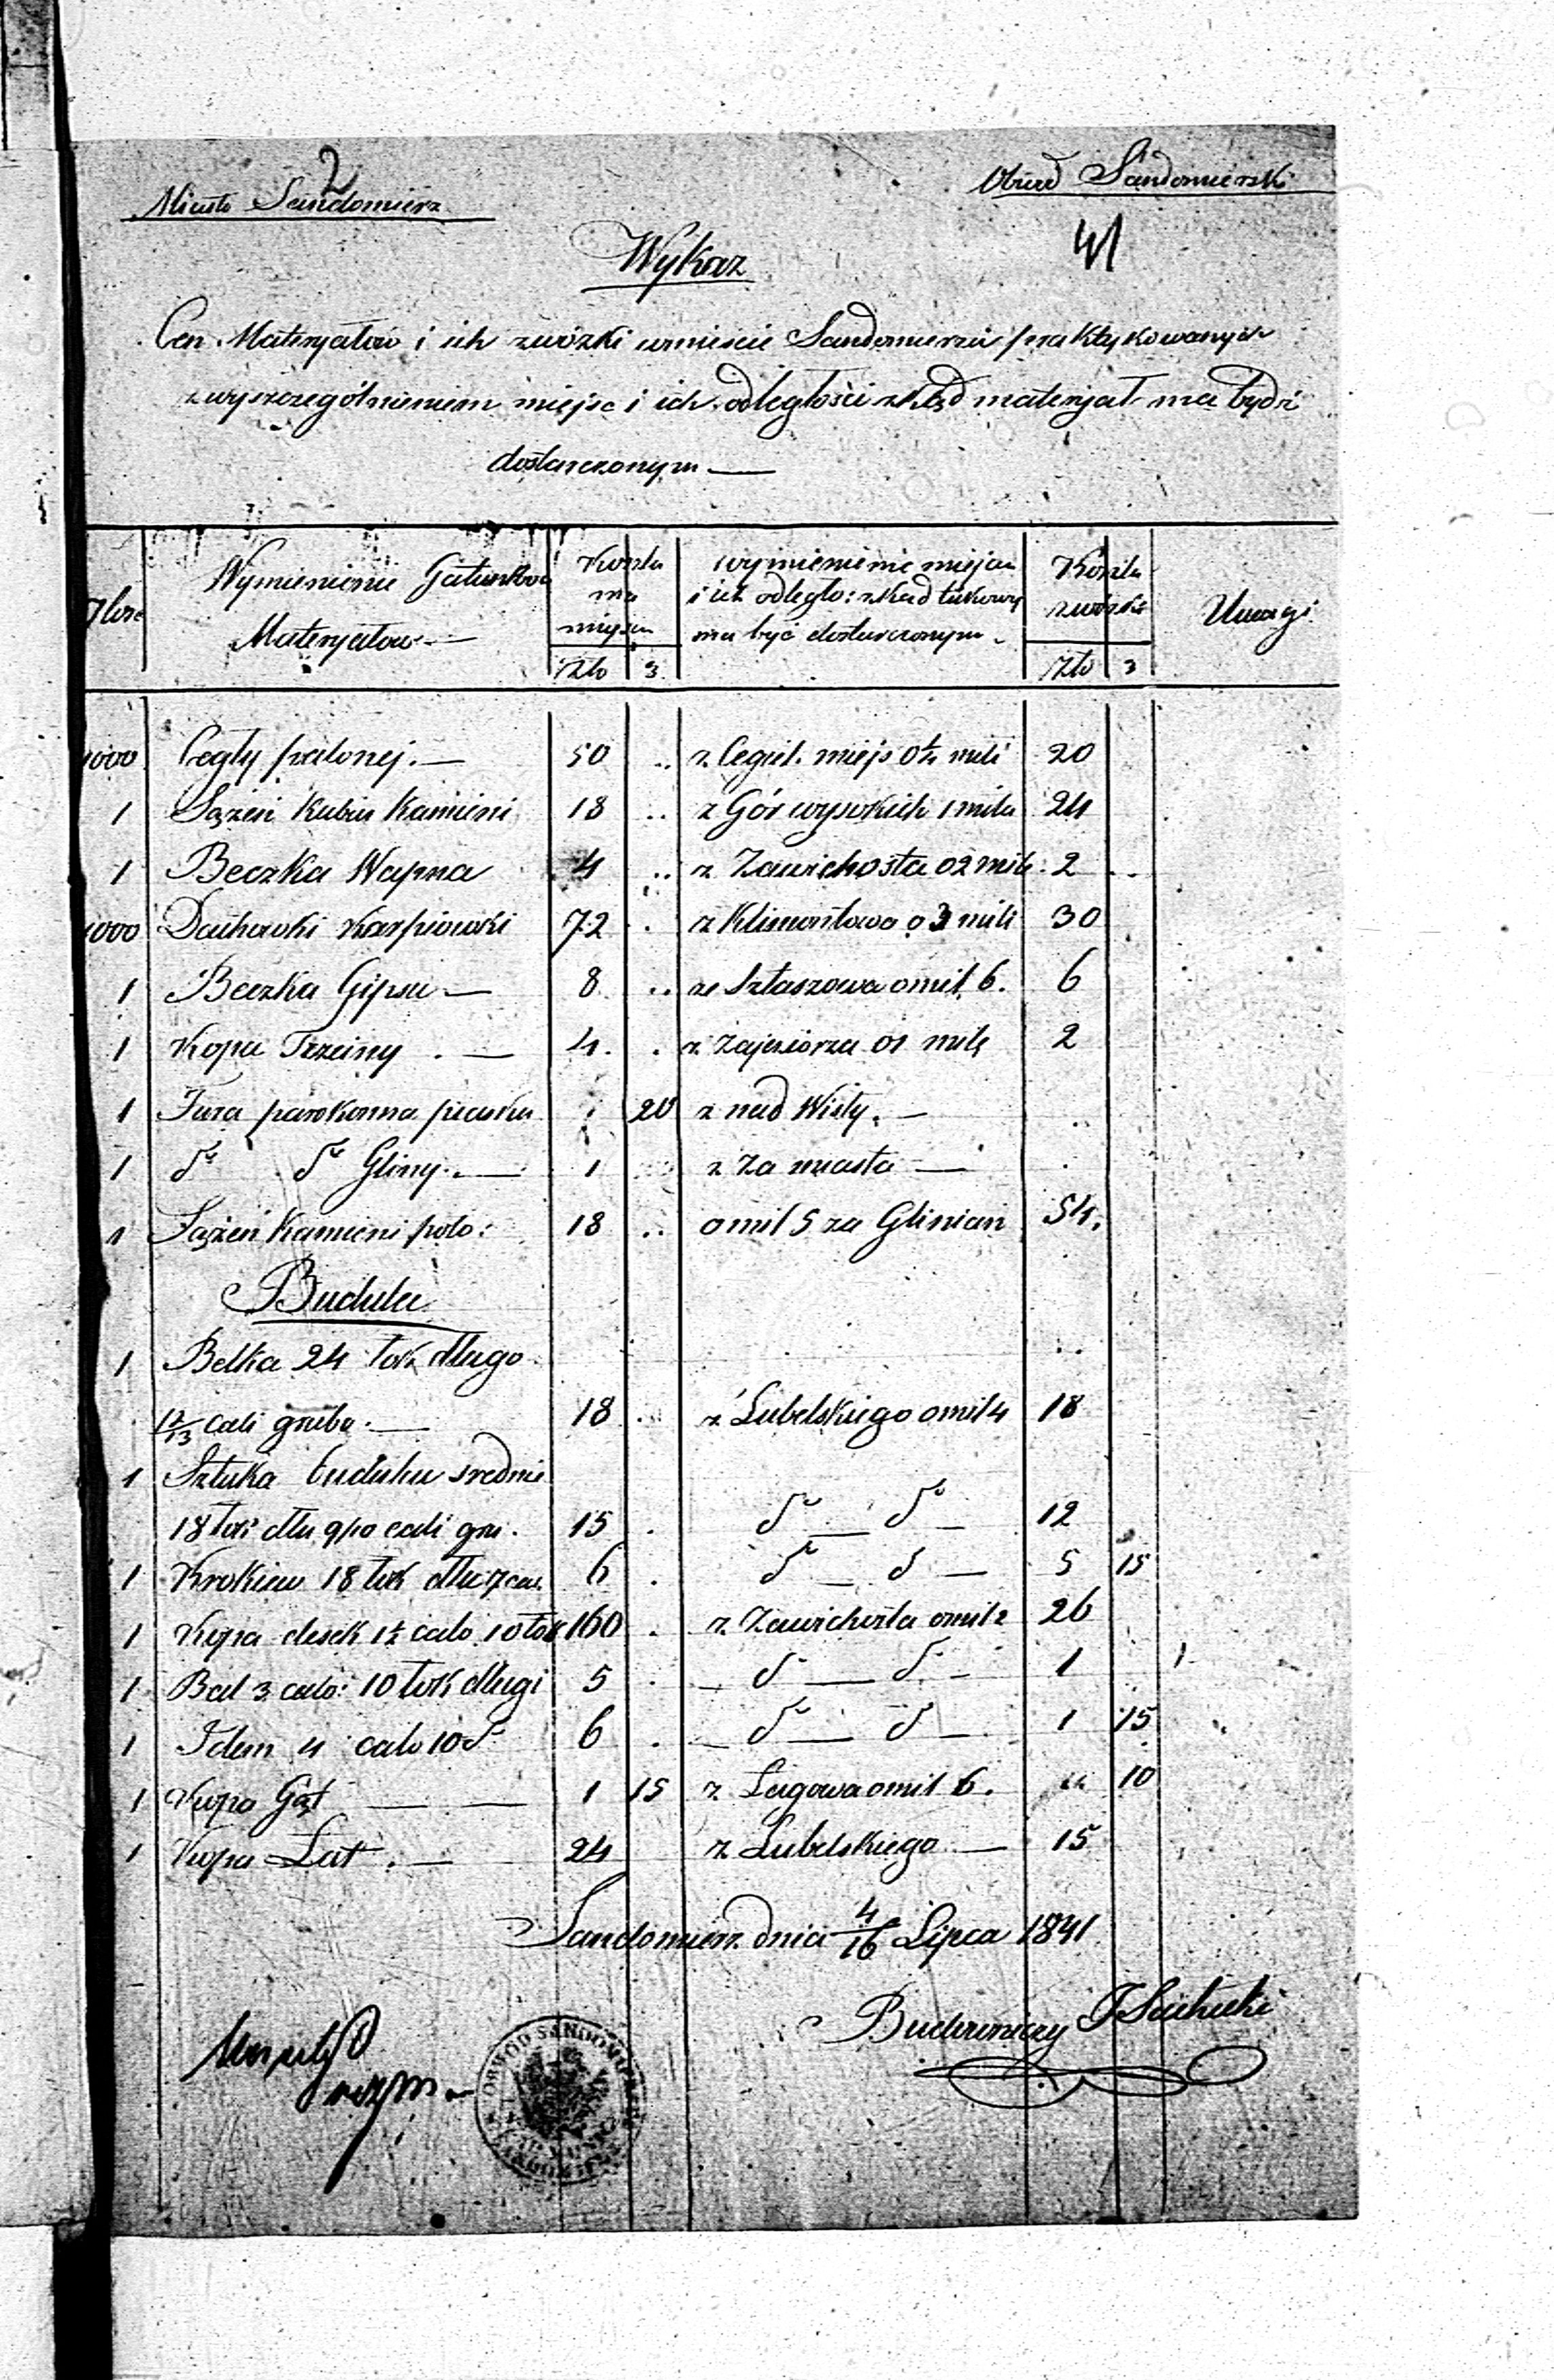 2
Miasto Sandomierz
Obwód Sandomierski
41
Wykaz
Cen Materyałów i ich zwózki w mieście Sandomierzu praktykowanych
z wyszczególnieniem miejsc i ich odległości zkąd materyał ma bydź
dostarczonym —
Ilość | Wymienienie Gatunków Materyałów — | Koszta na miejscu Złp g | wymienienie miejsca i ich odległo: zkąd takowy ma być dostarczonym. | Koszta zwózki Złp g | Uwagi
1000 Cegły palonej. — 50 .. z Cegiel. miejs 0½ mili 20
1 Sążeń Kubicz Kamieni 18 .. z Gór wysokich 1 mila 24
1 Beczka Wapna 4 .. z Zawichosta o 2 mile 2 ..
1000 Dachówki Karpiówki 72 . z Klimontowa o 3 mili 30
1 Beczka Gipsu — 8 .. ze Sztaszowa o mil 6. 6
1 Kopa Trzciny . — 4. . z Zajeziorza o 1 milę 2
1 Fura parokonna piasku . 20 z nad Wisły. —
1 dto dto Gliny. — 1 z Za miasta —
1 Sążeń Kamieni polo: 18 .. o mil 5 za Glinian 54.
Budulec
1 Belka 24 łok. długo
12/13 cali gruba. — 18 .. z Lubelskiego o mil 4 18
1 Sztuka budulcu średnie
18 łok dłu 9/10 cali gru. 15 . dto — dto — 12
1 Krokiew 18 łok dłu 7 cal. 6 . dto — d — 5 15
1 Kopa desek 1½ calo. 10 łok 160 . z Zawichosta o mil 2 26
1 Bal 3 calo: 10 łok długi 5 . — dto — dto — 1
1 Idem 4 calo 10 dto 6 . — dto — d — 1 15
1 Kopa Gąt — — 1 15 z Łagowa o mil 6. " 10
1 Kopa Łat . — 24 z Lubelskiego — 15
Sandomierz dnia 4/16 Lipca 1841
Budowniczy
OBWÓD SANDOMIERSKI